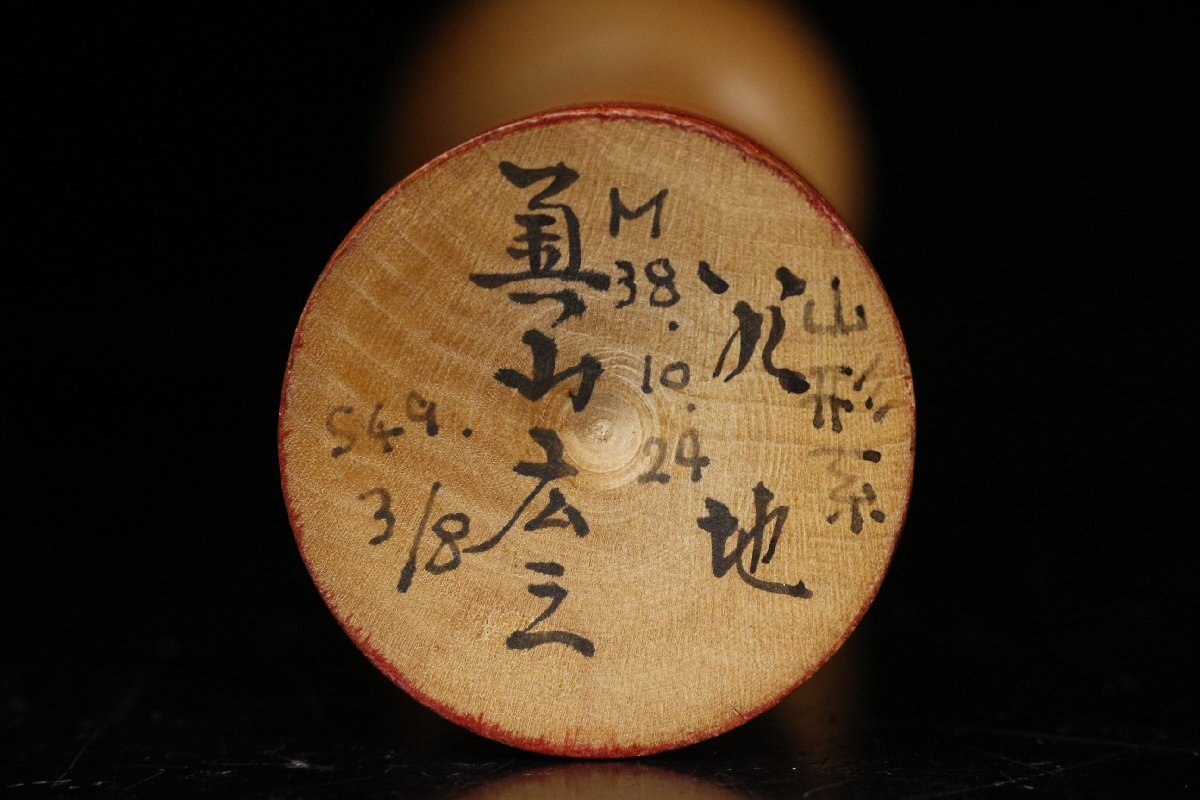 山形系
地
M
38.
10.
24
奥山広三
S49.
3/8